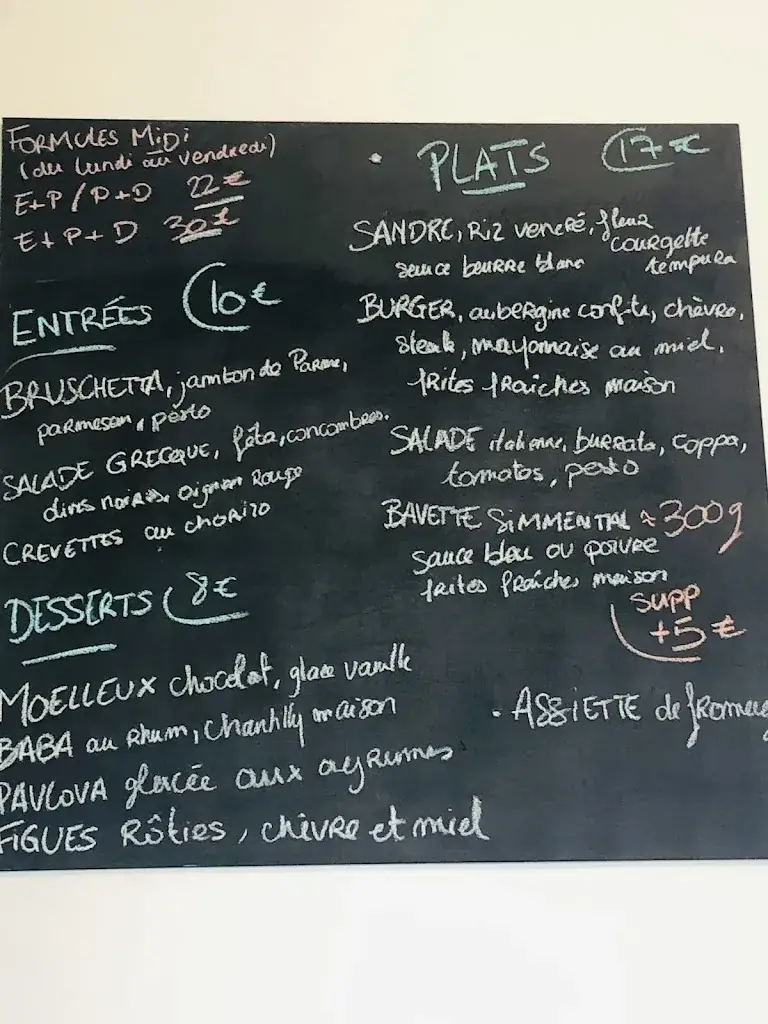 FORMULES MiDi
(du lundi au vendredi)
E+P / P+D 22€
E+P+D 30€
ENTRÉES 10€
BRUSCHETTA, jambon de Parme,
parmesan, pesto
SALADE GRECQUE, féta, concombres,
olives noires, oignon Rouge
CREVETTES au chorizo
DESSERTS 8€
MOELLEUX chocolat, glace vanille
BABA au Rhum, Chantilly maison
PAVLOVA glacée aux agrumes
FIGUES Rôties, chèvre et miel
• PLATS 17€
SANDRE, Riz veneré, fleur
courgette
tempura
sauce beurre blanc
BURGER, aubergine confite, chèvre,
steak, mayonnaise au miel,
frites fraîches maison
SALADE italienne, burrata, coppa,
tomates, pesto
BAVETTE SiMMENTAL ≈ 300g
sauce bleu ou poivre
frites fraîches maison
supp
+5€
• ASSIETTE de fromag